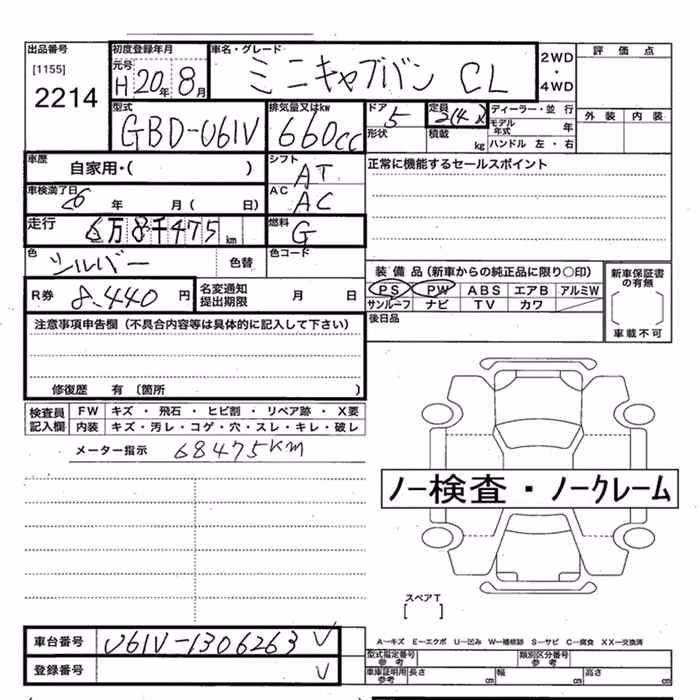 出品番号 初度登録年月 車名・グレード 2WD 評価点
[1155] 元号 H20年8月 ミニキャブバン CL ・
2214 4WD
型式 排気量又はkw ドア 定員 ディーラー・並行 外装 内装
GBD-U61V 660cc 5 2(4)人 モデル年式 年
形状 積載 kg ハンドル 左・右
車歴 自家用・( ) シフト AT 正常に機能するセールスポイント
車検満了日 年 月( 日) AC AC
走行 6万8千475km 燃料 G
色 シルバー 色替 色コード
装備品(新車からの純正品に限り○印) 新車保証書の有無
R券 8,440円 名変通知提出期限 月 日 PS PW ABS エアB アルミW
サンルーフ ナビ TV カワ
注意事項申告欄(不具合内容等は具体的に記入して下さい) 後日品 車載不可
修復歴 有 (箇所 )
検査員記入欄 FW キズ・飛石・ヒビ割・リペア跡・X要
内装 キズ・汚レ・コゲ・穴・スレ・キレ・破レ
メーター指示 68475KM
ノー検査・ノークレーム
スペアT
[ ]
車台番号 U61V-1306263 V
A－キズ E－エクボ U－凹み W－補修跡 S－サビ C－腐食 XX－交換済
登録番号 V 型式指定番号 参考 類別区分番号 参考
車庫証明用 参考 長さ cm 幅 cm 高さ cm